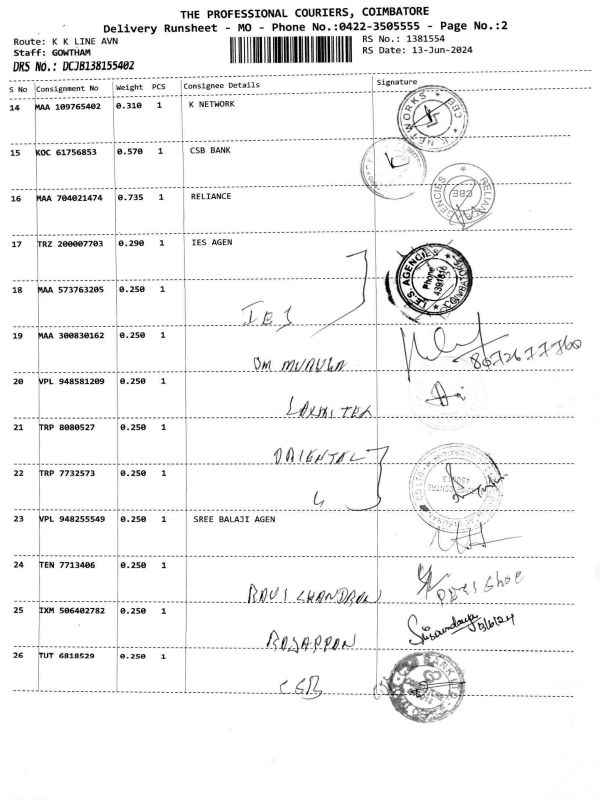 THE PROFESSIONAL COURIERS, COIMBATORE
Delivery Runsheet - MO - Phone No.:0422-3505555 - Page No.:2
Route: K K LINE AVN
RS No.: 1381554
Staff: GOWTHAM
RS Date: 13-Jun-2024
DRS No.: DCJB138155402
S No Consignment No Weight PCS Consignee Details Signature
14 MAA 109765402 0.310 1 K NETWORK
15 KOC 61756853 0.570 1 CSB BANK
16 MAA 704021474 0.735 1 RELIANCE
17 TRZ 200007703 0.290 1 IES AGEN
I.E.S. AGENCIES
Phone
4391816
18 MAA 573763205 0.250 1 IES
19 MAA 300830162 0.250 1 OM MURUGA
20 VPL 948581209 0.250 1
21 TRP 8080527 0.250 1 ORIENTAL
22 TRP 7732573 0.250 1
23 VPL 948255549 0.250 1 SREE BALAJI AGEN
24 TEN 7713406 0.250 1 RAVI CHANDRAN
25 IXM 506402782 0.250 1 ROJAPPAN
26 TUT 6818529 0.250 1 CSB